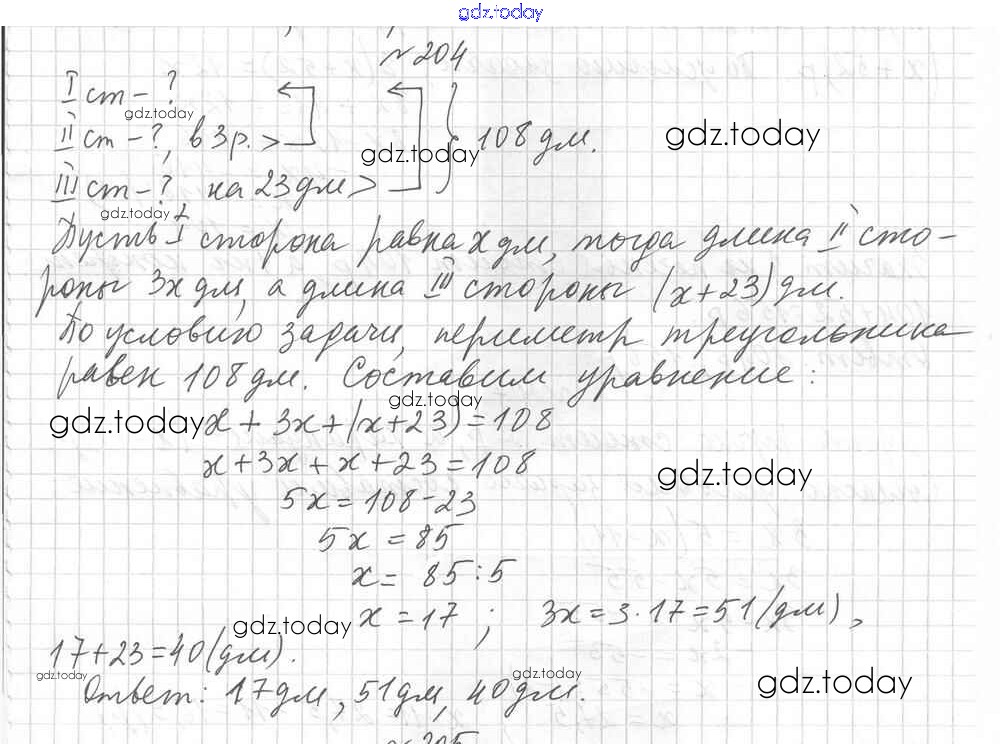 gdz.today
№204
I ст - ?
gdz.today
II ст - ?, в 3 р. >
108 дм.
gdz.today
gdz.today
III ст - ? на 23 дм >
gdz.today
Пусть I сторона равна x дм, тогда длина II сто-
роны 3x дм, а длина III стороны (x+23) дм.
По условию задачи, периметр треугольника
равен 108 дм. Составим уравнение:
gdz.today
gdz.today
x + 3x + (x+23) = 108
x + 3x + x + 23 = 108
gdz.today
5x = 108 - 23
5x = 85
x = 85 : 5
gdz.today
x = 17 ; 3x = 3 · 17 = 51 (дм),
17 + 23 = 40 (дм).
gdz.today
gdz.today
gdz.today
Ответ: 17 дм, 51 дм, 40 дм.
№205